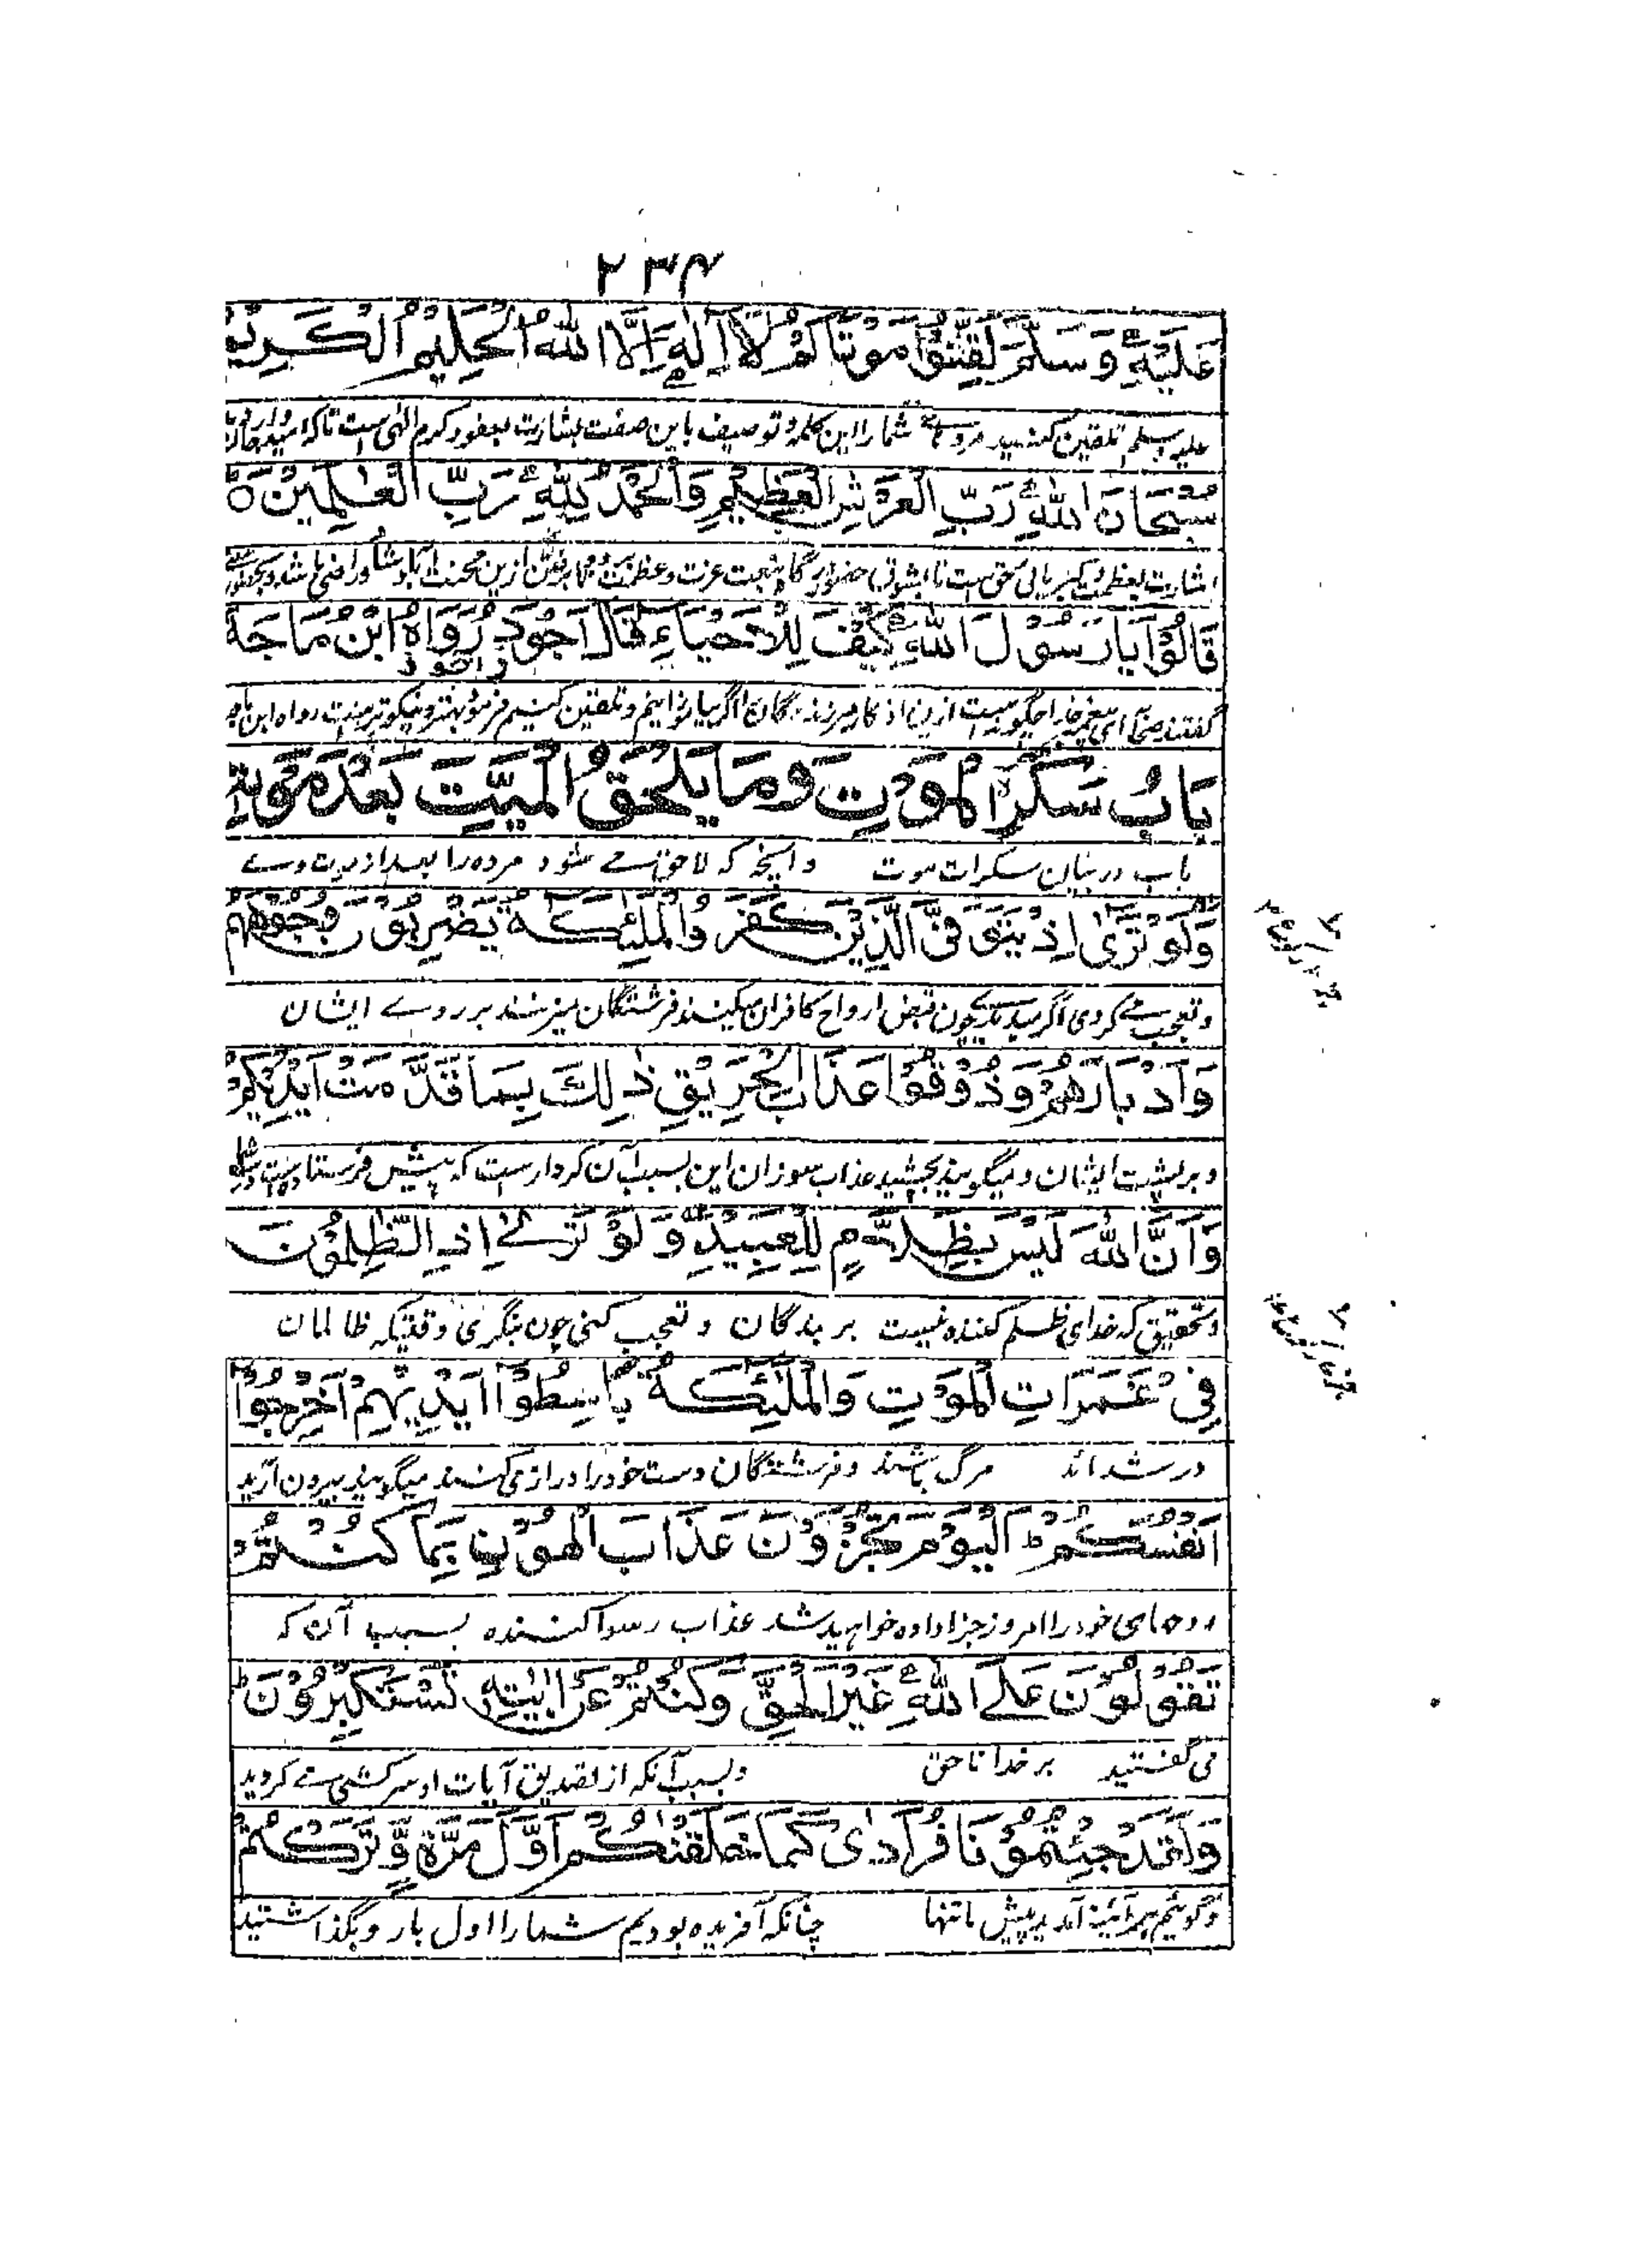 ۲۳۴
عَلَيْهِ وَسَلَّمَ لَقِّنُوْا مَوْتَاكُمْ لَا اِلٰهَ اِلَّا اللهُ الْحَلِيْمُ الْكَرِيْمُ
عليه وسلم تلقين كنيد شما را اين كلمه و توصيف باين صفت بشارت بعفو و كرم الهى است تا كه اميد
سُبْحَانَ اللهِ رَبِّ الْعَرْشِ الْعَظِيْمِ وَالْحَمْدُ لِلّٰهِ رَبِّ الْعٰلَمِيْنَ ه
اشارت بعظمت و كبريائى حق است تا بشوق عزت و عظمت ازين محنت راضى باشد
قَالُوْا يَا رَسُوْلَ اللهِ كَيْفَ لِلْاَحْيَاءِ قَالَ اَجْوَدُ رَوَاهُ ابْنُ مَاجَةَ
واجود
گفتند صحابه اى پيغمبر خدا چگونه است اين اذكار مر زندگان اگر و تلقين كنيم رواه ابن ماجه
بَابُ سَكَرَاتِ الْمَوْتِ وَمَا يَلْحَقُ الْمَيِّتَ بَعْدَ مَوْتِهٖ
باب در بيان سكرات موت و آنچه كه لاحق مے شود مرده را بعد از موت وے
وَلَوْ تَرٰى اِذْ يَتَوَفَّى الَّذِيْنَ كَفَرُوا الْمَلٰئِكَةُ يَضْرِبُوْنَ وُجُوْهَهُمْ
و تعجب مے كردى اگر چون قبض ارواح كافران ميكنند فرشتگان ميزنند بر روے ايشان
وَاَدْبَارَهُمْ وَذُوْقُوْا عَذَابَ الْحَرِيْقِ ذٰلِكَ بِمَا قَدَّمَتْ اَيْدِيْكُمْ
و بر پشت ايشان و ميگويند بچشيد عذاب سوزان اين بسبب آن كردار است كه پيش فرستاده است
وَاَنَّ اللهَ لَيْسَ بِظَلَّامٍ لِلْعَبِيْدِ وَلَوْ تَرٰے اِذِ الظّٰلِمُوْنَ
و تحقيق كه خداى ظلم كننده نيست بر بندگان و تعجب كنى چون بنگرى وقتيكه ظالمان
فِىْ غَمَرَاتِ الْمَوْتِ وَالْمَلٰئِكَةُ بَاسِطُوْا اَيْدِيْهِمْ اَخْرِجُوْا
در شدائد مرگ باشند و فرشتگان دست خود را دراز مى كنند ميگويند بيرون آريد
اَنْفُسَكُمْ ط اَلْيَوْمَ تُجْزَوْنَ عَذَابَ الْهُوْنِ بِمَا كُنْتُمْ
روحهاى خود را امروز جزا داده خواهيد شد عذاب رسوا كننده بسبب آن كه
تَقُوْلُوْنَ عَلَے اللهِ غَيْرَ الْحَقِّ وَكُنْتُمْ عَنْ اٰيٰتِهٖ تَسْتَكْبِرُوْنَ ط
مى گفتيد بر خدا ناحق و بسبب آنكه از تصديق آيات او سركشى مے كرديد
وَلَقَدْ جِئْتُمُوْنَا فُرَادٰى كَمَا خَلَقْنٰكُمْ اَوَّلَ مَرَّةٍ وَّتَرَكْتُمْ
و گوئيم هر آئينه آمديد پيش ما تنها چنانكه آفريده بوديم شما را اول بار و بگذاشتيد